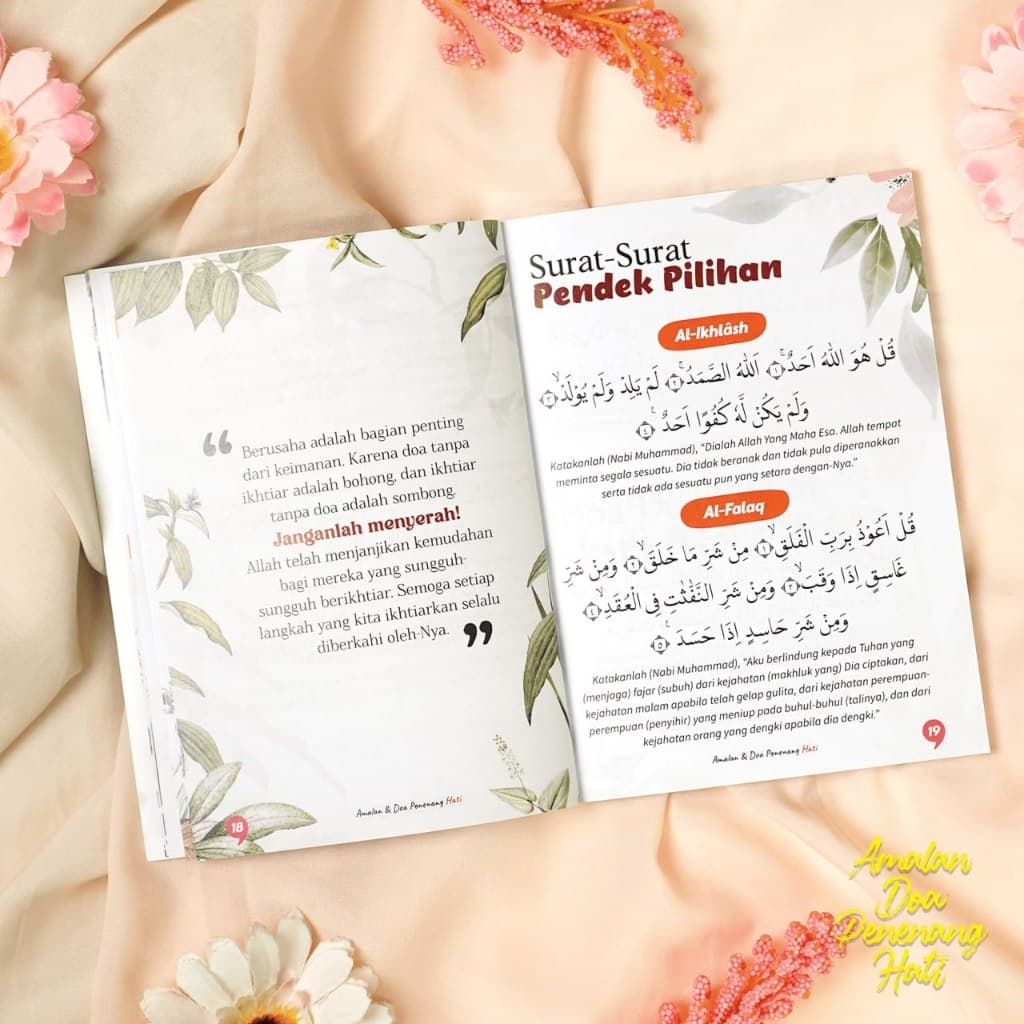 Berusaha adalah bagian penting
dari keimanan. Karena doa tanpa
ikhtiar adalah bohong, dan ikhtiar
tanpa doa adalah sombong.
Janganlah menyerah!
Allah telah menjanjikan kemudahan
bagi mereka yang sungguh-
sungguh berikhtiar. Semoga setiap
langkah yang kita ikhtiarkan selalu
diberkahi oleh-Nya.
Amalan & Doa Penenang Hati
18
Surat-Surat
Pendek Pilihan
Al-Ikhlâsh
قُلْ هُوَ اللّٰهُ اَحَدٌۚ ١ اَللّٰهُ الصَّمَدُۚ ٢ لَمْ يَلِدْ وَلَمْ يُوْلَدْۙ ٣
وَلَمْ يَكُنْ لَّهٗ كُفُوًا اَحَدٌ ࣖ ٤
Katakanlah (Nabi Muhammad), “Dialah Allah Yang Maha Esa. Allah tempat
meminta segala sesuatu. Dia tidak beranak dan tidak pula diperanakkan
serta tidak ada sesuatu pun yang setara dengan-Nya.”
Al-Falaq
قُلْ اَعُوْذُ بِرَبِّ الْفَلَقِۙ ١ مِنْ شَرِّ مَا خَلَقَۙ ٢ وَمِنْ شَرِّ
غَاسِقٍ اِذَا وَقَبَۙ ٣ وَمِنْ شَرِّ النَّفّٰثٰتِ فِى الْعُقَدِۙ ٤
وَمِنْ شَرِّ حَاسِدٍ اِذَا حَسَدَ ࣖ ٥
Katakanlah (Nabi Muhammad), “Aku berlindung kepada Tuhan yang
(menjaga) fajar (subuh) dari kejahatan (makhluk yang) Dia ciptakan, dari
kejahatan malam apabila telah gelap gulita, dari kejahatan perempuan-
perempuan (penyihir) yang meniup pada buhul-buhul (talinya), dan dari
kejahatan orang yang dengki apabila dia dengki.”
Amalan & Doa Penenang Hati
19
Amalan
Doa
Penenang
Hati